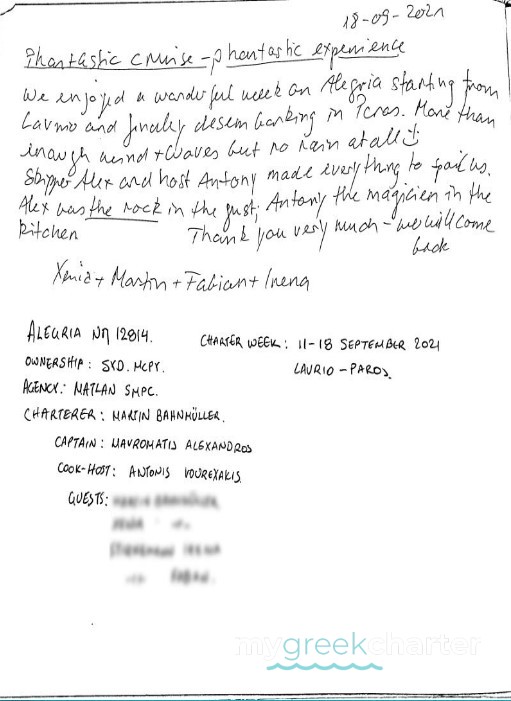 18-09-2021
Phantastic cruise - phantastic experience
We enjoyed a wonderful week on Alegria starting from
Lavrio and finally desembarking in Paros. More than
enough wind + waves but no rain at all :)
Skipper Alex and host Antony made everything to us.
Alex was the rock in the gust; Antony the magicien in the
kitchen Thank you very much - we will come
back
Xenia + Martin + Fabian + Irena
ALEGRIA NΠ 12814.
CHARTER WEEK: 11-18 SEPTEMBER 2021
OWNERSHIP: SXD. MCPY.
LAURIO - PAROS.
AGENCY: MATLAN SMPC.
CHARTERER: MARTIN BAHNMÜLLER.
CAPTAIN: MAVROMATIS ALEXANDROS
COOK-HOST: ANTONIS VOUREXAKIS
GUESTS:
mygreekcharter